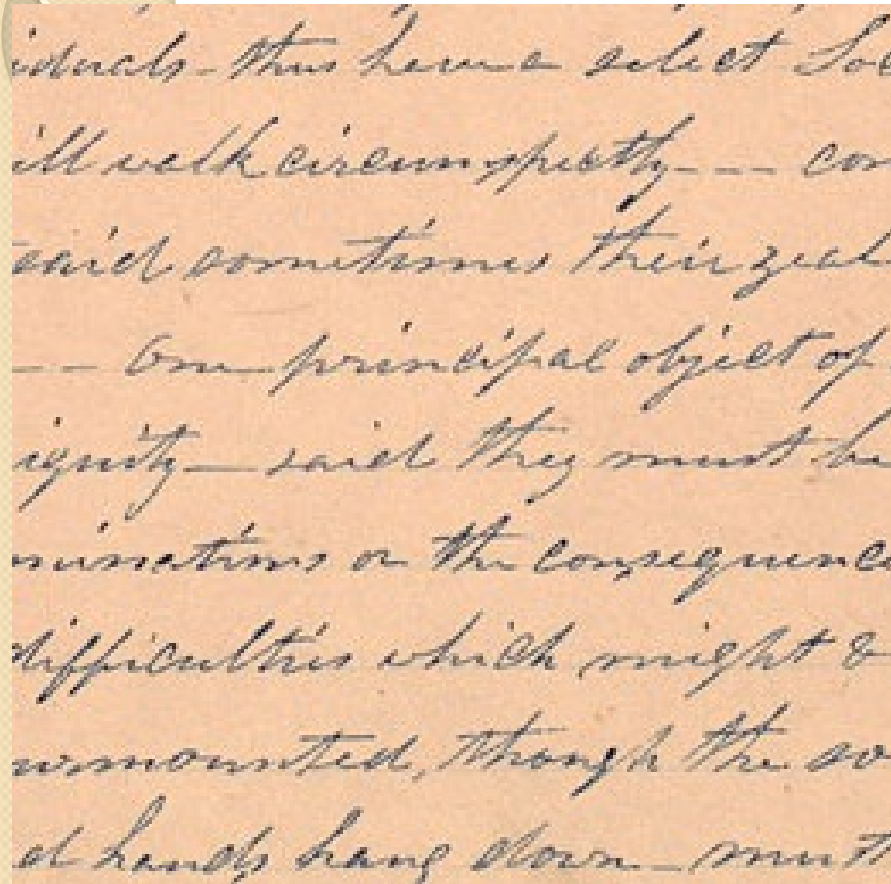 iduals - thus have a select Soc
ill walk circumspectly - - - con
said sometimes their zeal
- - One principal object of
iquity - said they must be
minations or the consequence
difficulties which might b
urmounted, though the so
d hands hang down - must